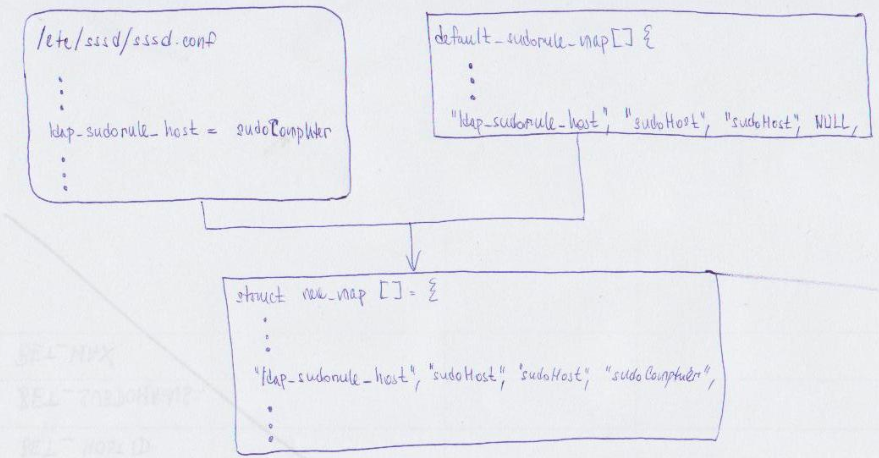 /etc/sssd/sssd.conf
ldap_sudorule_host = sudoComputer
default_sudorule_map[] {
"ldap_sudorule_host", "sudoHost", "sudoHost", NULL,
struct new_map [] = {
"ldap_sudorule_host", "sudoHost", "sudoHost", "sudoComputer",